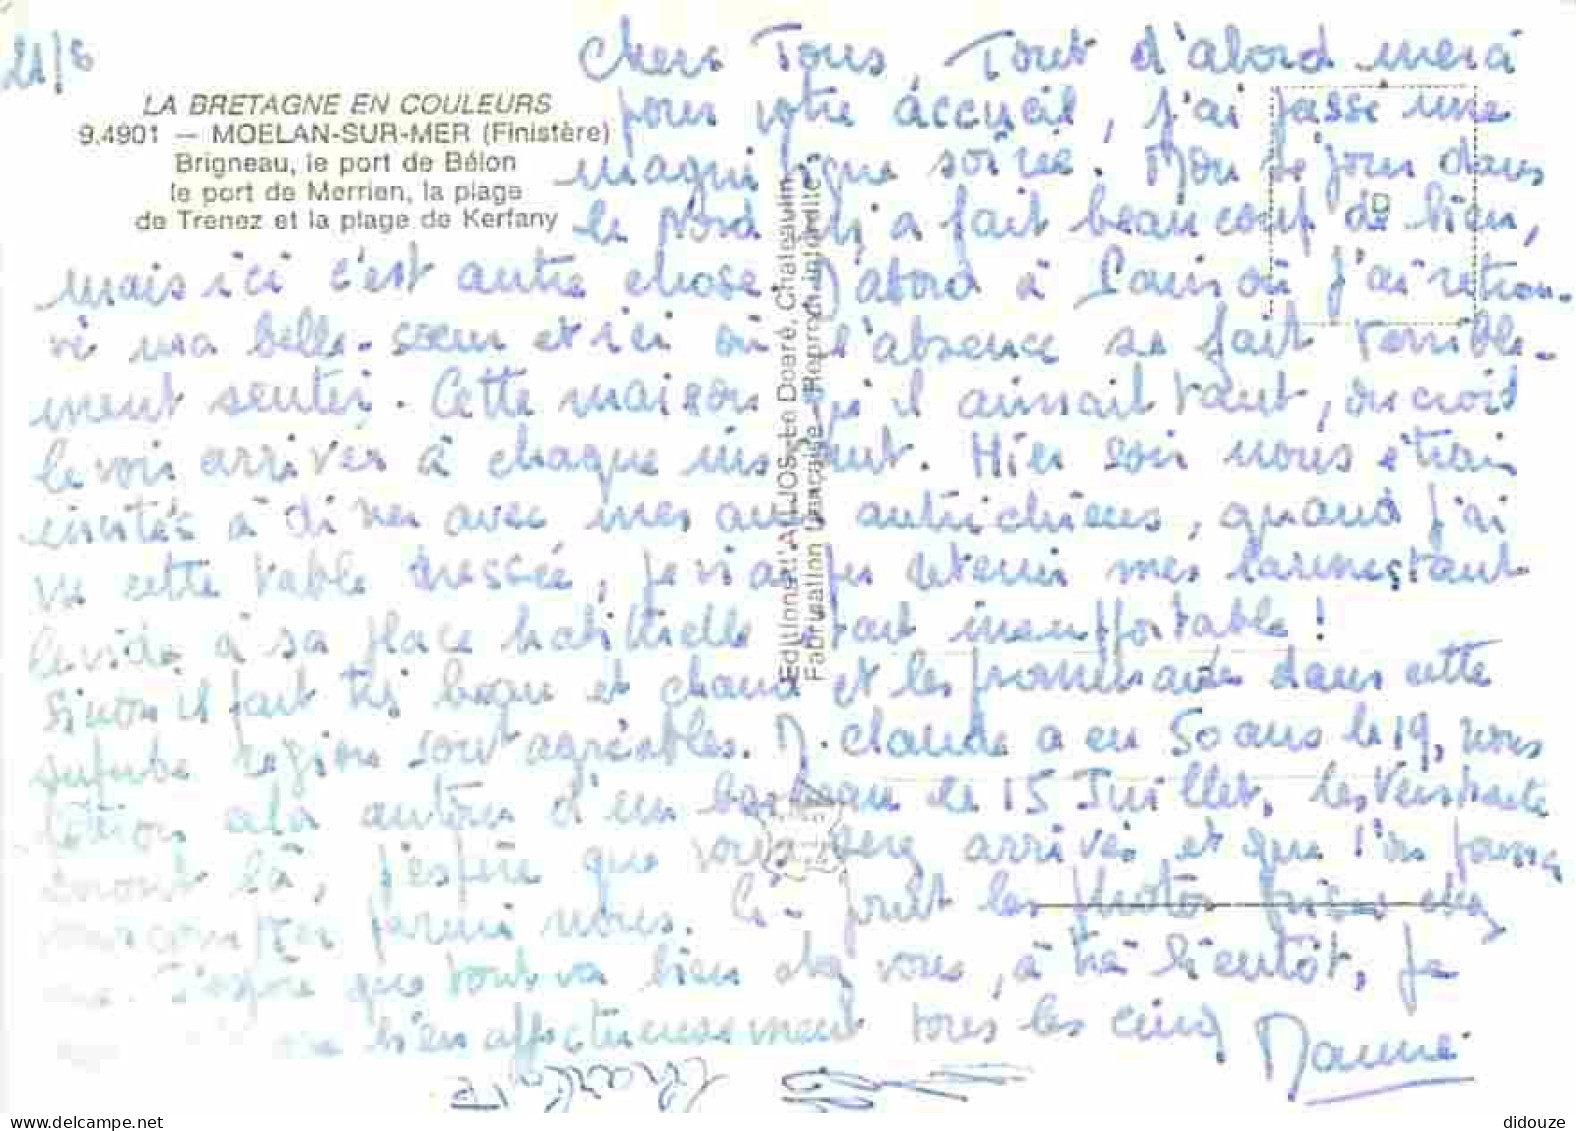 21/8
LA BRETAGNE EN COULEURS
9.4901 — MOELAN-SUR-MER (Finistère)
Brigneau, le port de Bélon
le port de Merrien, la plage
de Trenez et la plage de Kerfany
Chers Tous, Tout d'abord merci
pour votre accueil, j'ai passé une
magnifique soirée. Mon séjour dans
le Nord m'a fait beaucoup de bien,
mais ici c'est autre chose. D'abord à Paris où j'ai retrou-
vé ma belle-soeur et ici où l'absence se fait terrible-
ment sentir. Cette maison qu'il aimait tant, on croit
le voir arriver à chaque instant. Hier soir nous étions
invités à dîner avec mes amis autrichiens, quand j'ai
vu cette table dressée, je n'ai pu retenir mes larmes tant
le vide à sa place habituelle était
Sinon il fait très beau et chaud et les promenades dans cette
superbe région sont agréables. M. Claude a eu 50 ans le 19, nous
autour d'un le 15 Juillet, les
seront là, j'espère que vous serez arrivés et que l'on pourra
vous compter parmi nous. Ci-joint les photos prises chez
J'espère que tout va bien chez vous, à très bientôt, je
bien affectueusement tous les cinq
Editions d'Art JOS Le Doaré, Chateaulin
Fabrication Française - Reproduction interdite
didouze